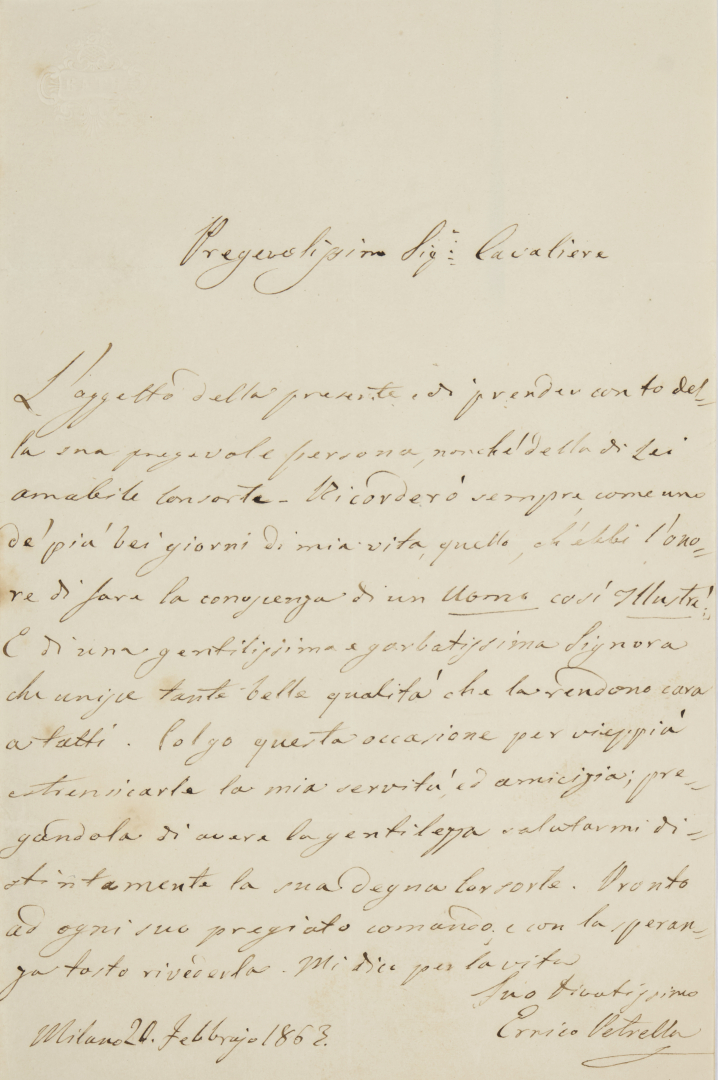 Pregevolissimo Sig:r: Cavaliere
L'oggetto della presente, è di prender conto del=
la sua pregevole persona, nonché della di Lei
amabile Consorte – Ricorderó sempre come uno
de' piú bei giorni di mia vita, quello, ch'ebbi l'ono=
re di fare la conoscenza di un Uomo cosí Illustre!
E di una gentilissima e garbatissima Signora
che unisce tante belle qualitá che la rendono cara
a tutti. Colgo questa occasione per vieppiú
estrensicarle la mia servitú, ed amicizia; pre=
gandola di avere la gentilezza salutarmi di=
stintamente la sua degna Consorte. Pronto
ad ogni suo pregiato comando, e con la speran=
za tosto rivederla. Mi dico per la vita
Suo Divotissimo
Errico Petrella
Milano 20. Febbrajo 1863.